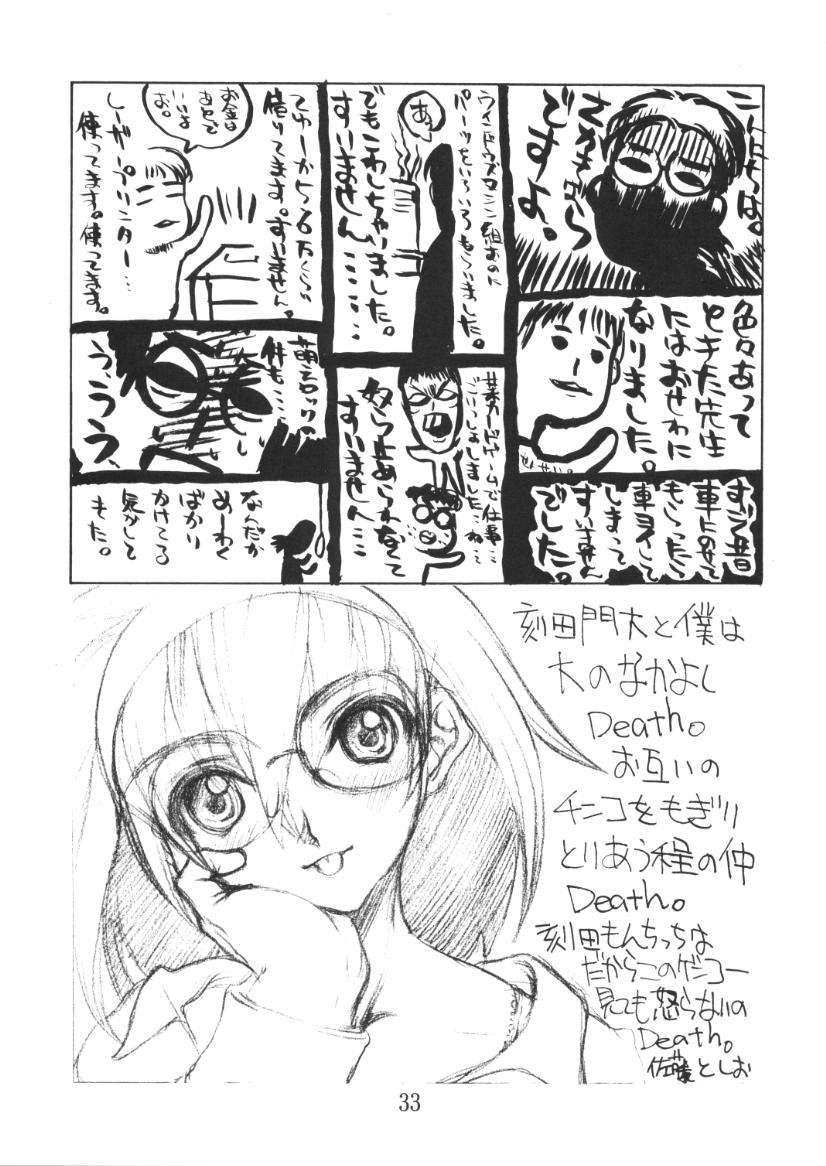 こんにちは。
さかもぎら
ですよ。
色々あって
ときた先生
にはおせわに
なりました。
せんせい。
すごう昔
車にのせて
もらったら
車ヨイして
しまって
すいません
でした。
ウインドウズマシン組むのに
パーツをいろいろもらいました。
あっ
でもこわしちゃいました。
すいません…………
某カードゲームで仕事…
ごいっしょしました…ね…
奴ら止められなくて
すいません…
お金は
あとで
いいよ
お。
てゆーか5、6万くらい
借りてます。すいません。
レーザープリンター…
使ってます。使ってます。
萌エロックの
件も…
う、うう、
なんだか
めーわく
ばかり
かけてる
気がして
きた。
刻田門大と僕は
大のなかよし
Death。
お互いの
チンコをもぎり
とりあう程の仲
Death。
刻田もんちっちは
だからこのゲンコー
見ても怒らないの
Death。
佐藤としお
33